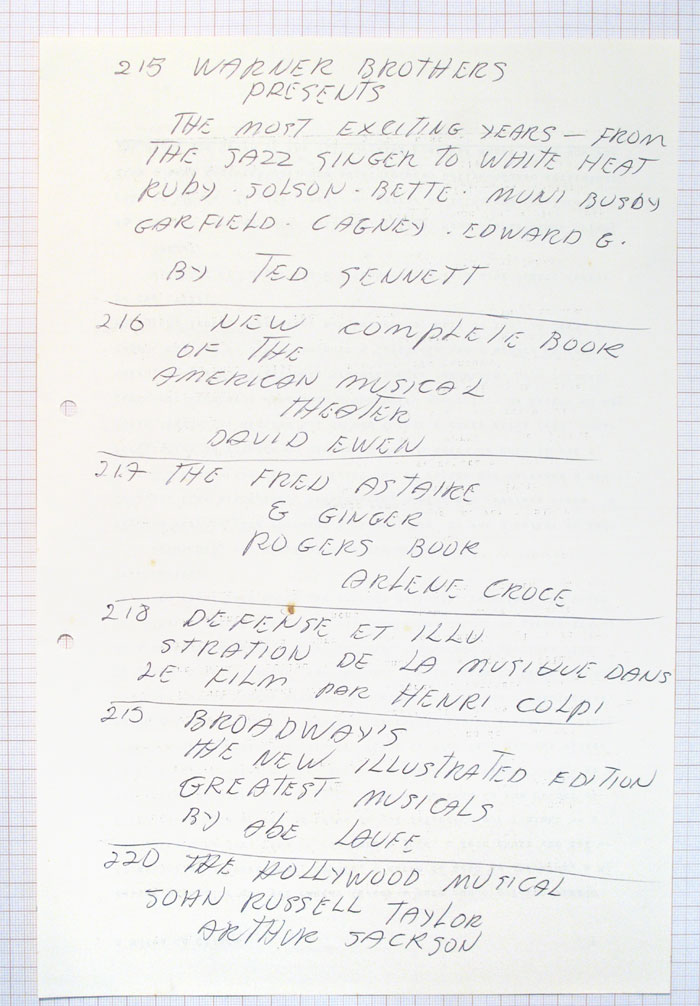 215 WARNER BROTHERS
PRESENTS
THE MOST EXCITING YEARS — FROM
THE JAZZ SINGER TO WHITE HEAT
RUBY · JOLSON · BETTE · MUNI BUSBY
GARFIELD · CAGNEY · EDWARD G.
BY TED SENNETT
216 NEW COMPLETE BOOK
OF THE
AMERICAN MUSICAL
THEATER
DAVID EWEN
217 THE FRED ASTAIRE
& GINGER
ROGERS BOOK
ARLENE CROCE
218 DEFENSE ET ILLU
STRATION DE LA MUSIQUE DANS
LE FILM PAR HENRI COLPI
219 BROADWAY'S
THE NEW ILLUSTRATED EDITION
GREATEST MUSICALS
BY ABE LAUFE
220 THE HOLLYWOOD MUSICAL
JOHN RUSSELL TAYLOR
ARTHUR JACKSON